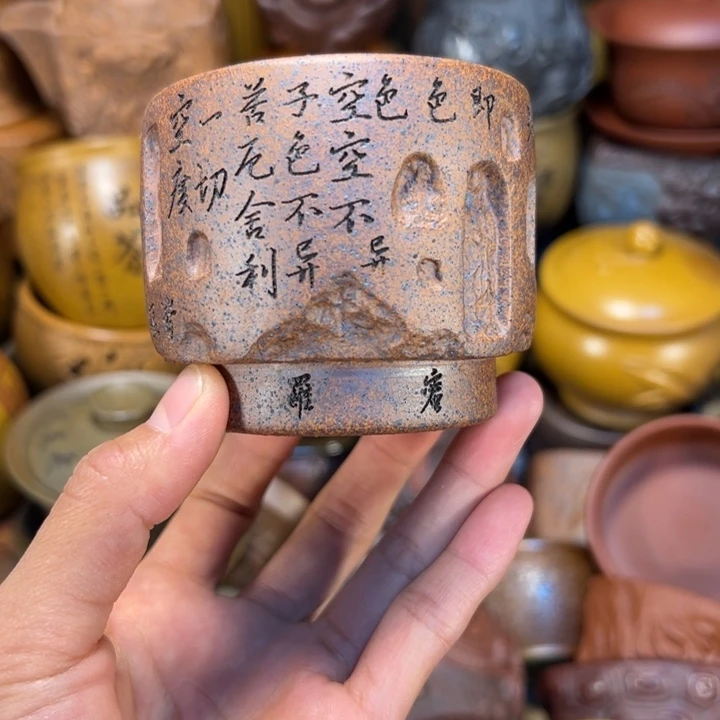 空度
一切
苦厄舍利
子色不异
空空不异
色
色
即
羅
蜜